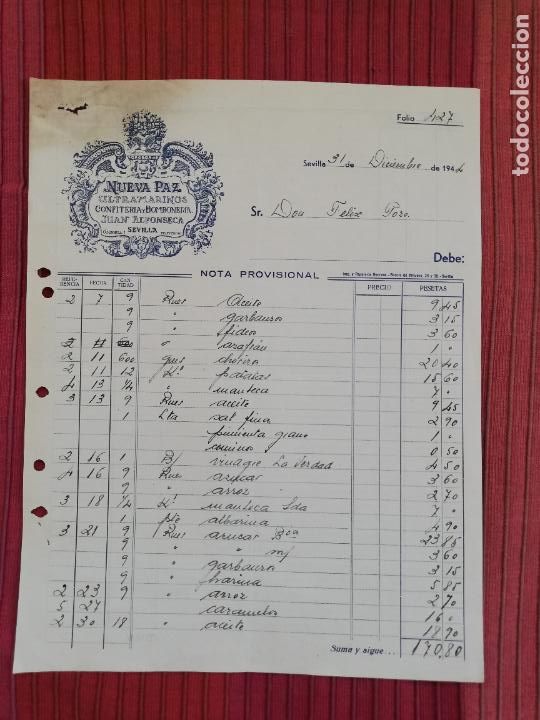 Folio 427
Sevilla 31 de Diciembre de 1944
NUEVA PAZ
ULTRAMARINOS
CONFITERIA Y BOMBONERIA
JUAN ALFONSECA
SEVILLA
Sr. Don Felix Poro.
Debe:
NOTA PROVISIONAL
REFERENCIA FECHA CANTIDAD PRECIO PESETAS
2 7 9 aceite 9 45
9 " garbanzos 3 15
9 " fideos 3 60
" "
2 11 600 grs chorizo 20 40
2 11 12 15 60
4 13 1/2 " manteca 7 "
3 13 9 aceite 9 45
1 Lta sal fina 2 90
pimienta grano 1 "
comino 0 50
2 16 1 Bl vinagre La Verdad 4 50
4 16 9 azucar 3 60
9 " arroz 2 70
3 18 1/4 manteca 7 "
1 4 90
3 21 9 azucar 23 85
9 " " 3 60
9 " garbanzos 3 15
9 " harina 5 85
2 23 9 " arroz 2 70
5 27 caramelos 16 "
2 30 18 " aceite 18 90
Suma y sigue... 170,80
todocoleccion
todocoleccion.net